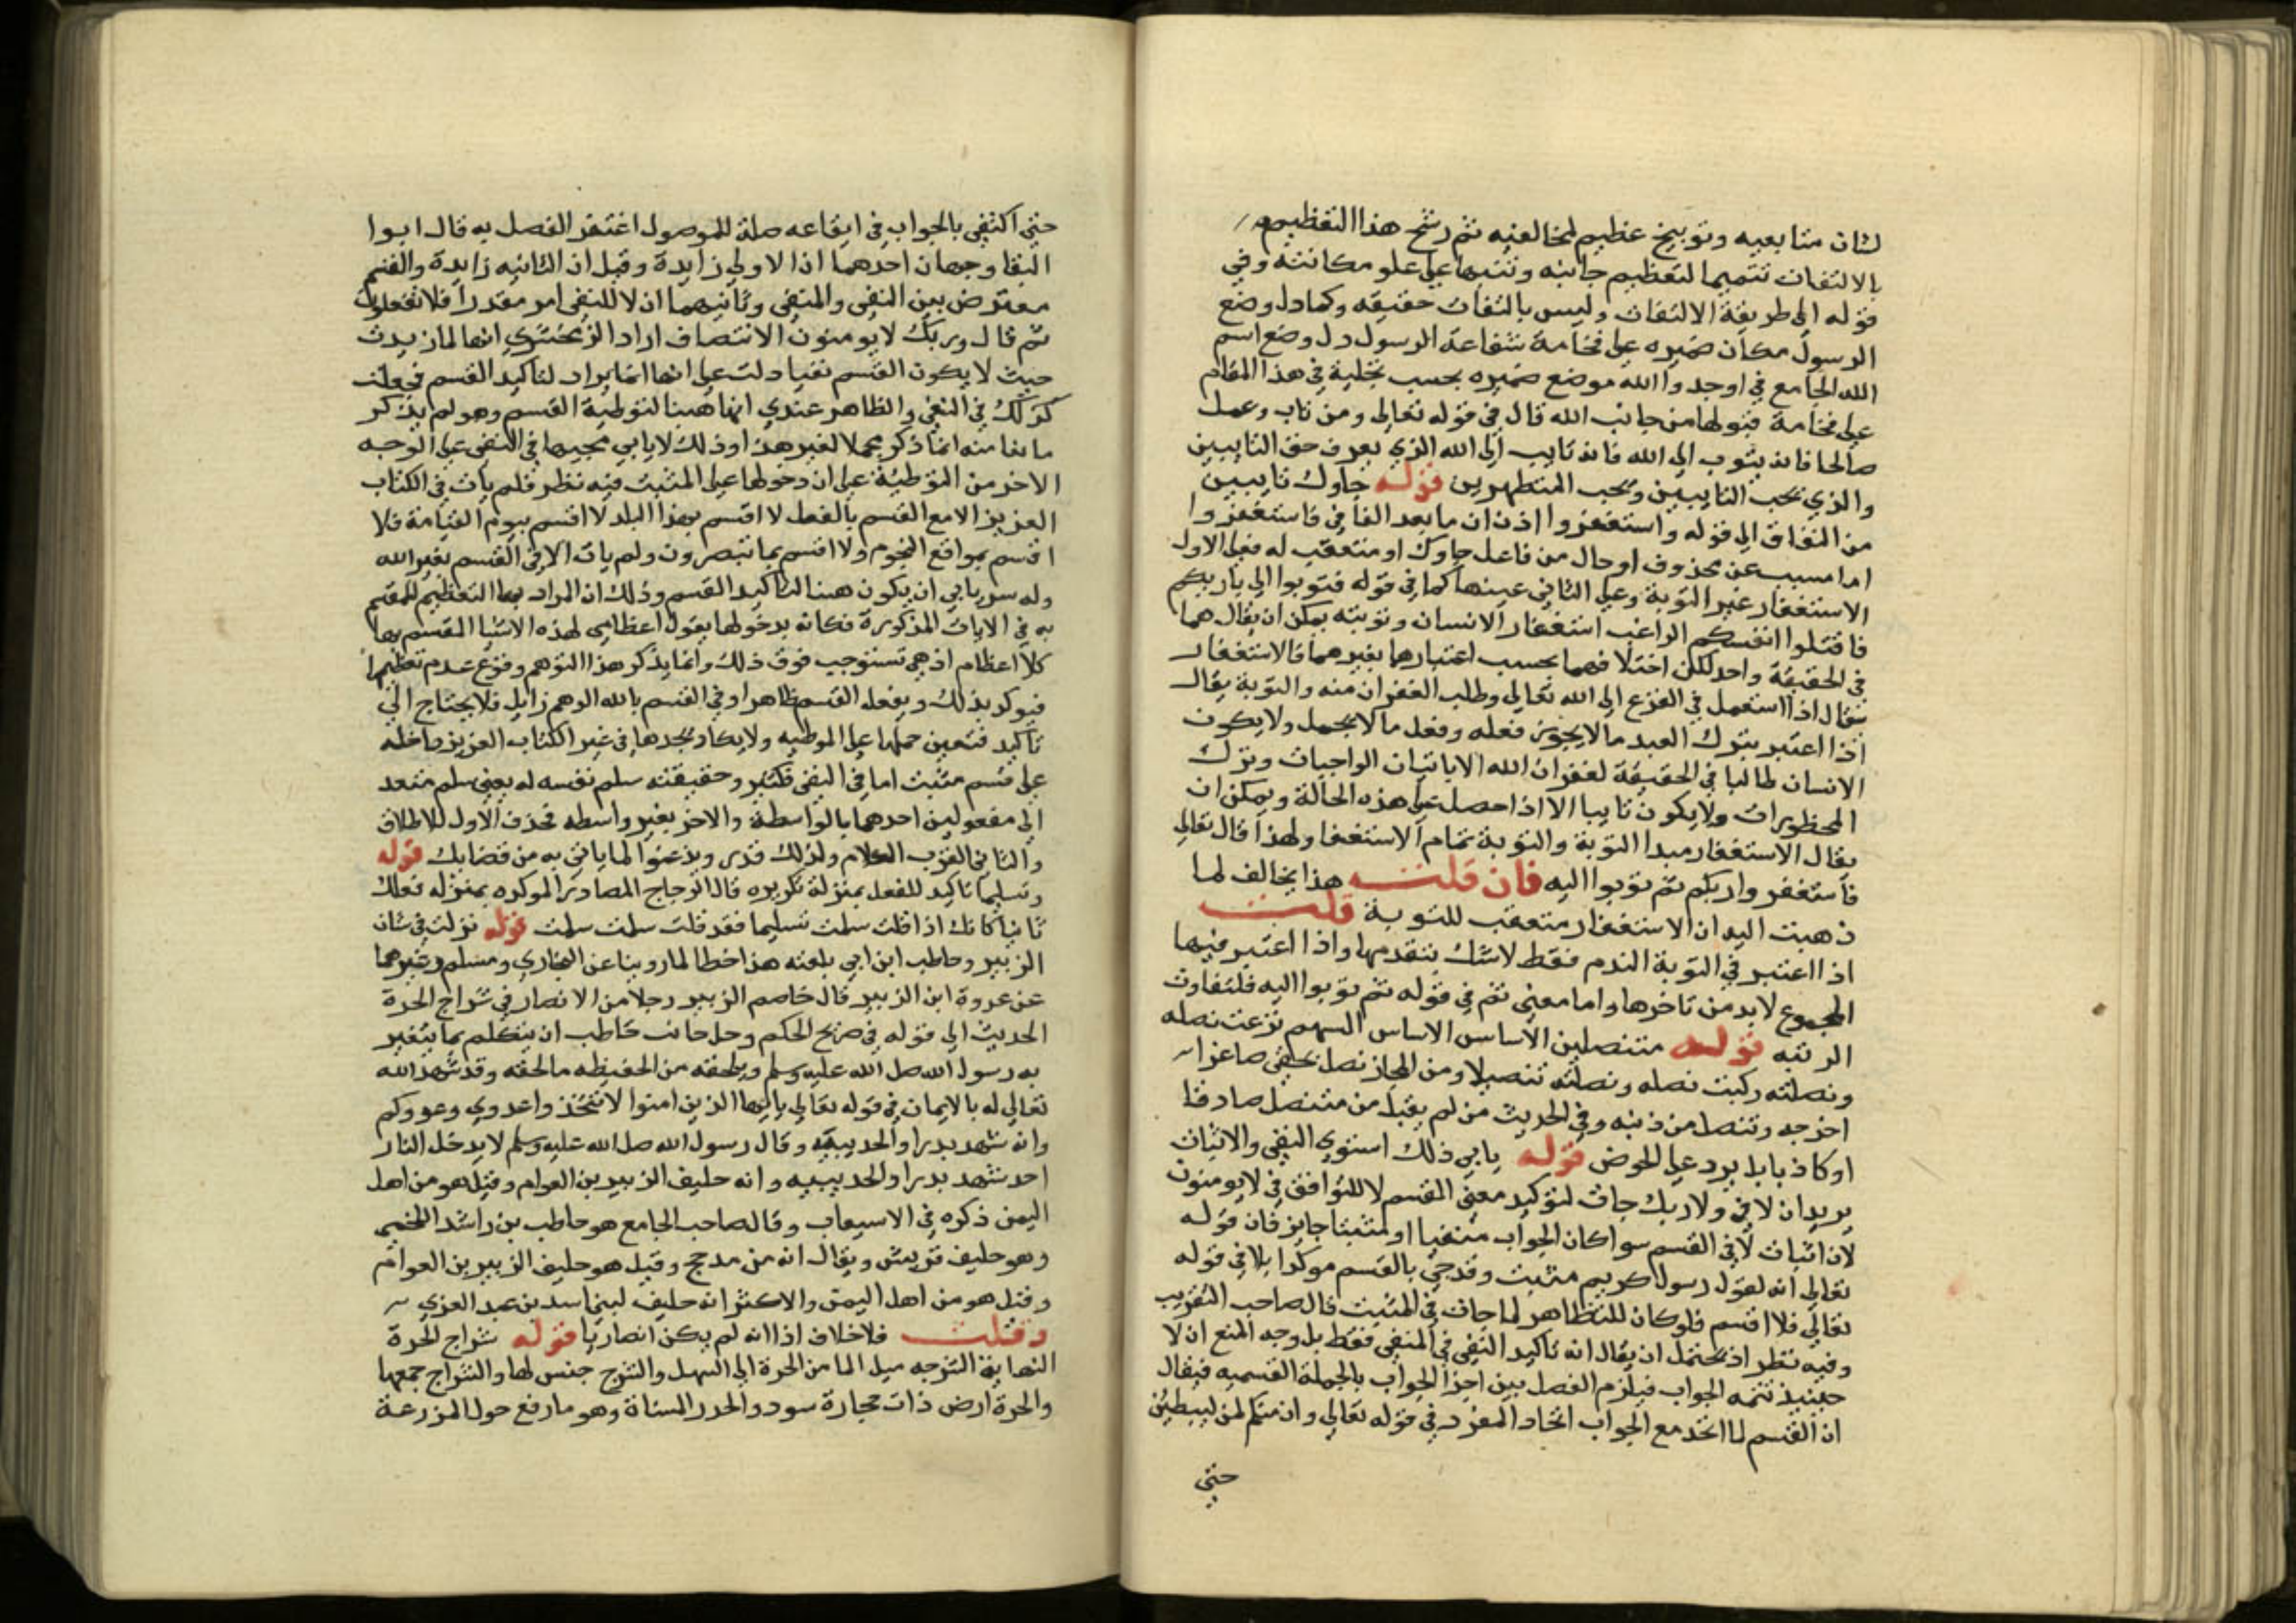 لشان متابعيه وتوبيخ عظيم لمخالفيه ثم رشح هذا التعظيم
بالالتفات تتميما لتعظيم جانبه وتنبيها علي علو مكانته وفي
قوله الى طريقة الالتفات وليس بالتفات حقيقه وكما دل وضع
الرسول مكان ضميره على فخامة شفاعة الرسول دل وضع اسم
الله الجامع في لوجدوا الله موضع ضميره بحسب تجليه في هذا المقام
علي فخامة قبولها من جانب الله قال في قوله تعالى ومن تاب وعمل
صالحا فانه يتوب الى الله فانه تايب الى الله الذي يعرف حق التايبين
والذي يحب التايبين ويحب المتطهرين قوله جاوك تايبين
من النفاق الى قوله واستغفروا اذن ان ما بعد الفا في فاستغفروا
اما مسبب عن محذوف او حال من فاعل جاوك او متعقب له فعلى الاول
الاستغفار غير التوبة وعلي الثاني عينها كما في قوله فتوبوا الى باريكم
فاقتلوا انفسكم الراغب استغفار الانسان وتوبته يمكن ان يقال هما
في الحقيقة واحد لكن اختلافهما بحسب اعتبارها بغيرهما فالاستغفار
يقال اذا استعمل في الفزع الى الله تعالى وطلب الغفران منه والتوبة يقال
اذا اعتبر بترك العبد ما لا يجوز فعله وفعل ما لا يجمل ولا يكون
الانسان طالبا في الحقيقة لغفران الله الا باتيان الواجبات وترك
المحظورات ولا يكون تايبا الا اذا حصل علي هذه الحالة ويمكن ان
يقال الاستغفار مبدا التوبة والتوبة تمام الاستغفا ولهذا قال تعالى
فاستغفروا ربكم ثم توبوا اليه فان قلت هذا يخالف لما
ذهبت اليه ان الاستغفار متعقب للتوبة قلت
اذا اعتبر في التوبة الندم فقط لا شك بتقدمها واذا اعتبر فيها
المجموع لابد من تاخرها واما معنى ثم في قوله ثم توبوا اليه فلتفاوت
الرتبه قوله متنصلين الاساس الاساس السهم نزعت نصله
ونصلته ركبت نصله ونصلته تنصيلا ومن المجاز نصل بحقى صاغرا
اخرجه وتنصل من ذنبه وفي الحديث من لم يقبل من متنصل صادقا
او كاذبا لم يرد علي الحوض قوله يابي ذلك استوي النفي والاثبات
يريد ان لا في ولا ربك جات لتوكيد معنى القسم لا للتوافق في لا يومنون
لان اثبات لا في القسم سوا كان الجواب منفيا او مثبتا جايز فان قوله
تعالى انه لقول رسول كريم مثبت وقد جي بالقسم موكدا بلا في قوله
تعالي فلا اقسم فلو كان للتظاهر لما جات في المثبت قال صاحب التقريب
وفيه نظر اذ يحتمل ان يقال انه تاكيد النفي في المنفي فقط بل وجه المنع ان لا
حينيذ تتمه الجواب فيلزم الفصل بين اجزا الجواب بالجملة القسميه فيقال
ان القسم لما اتحد مع الجواب اتحاد المفرد في قوله تعالى وان منكم لمن ليبطين
حتى
حتى اكتفي بالجواب في ايقاعه صلة للموصول اغتفر الفصل به قال ابوا
البقا وجهان احدهما اذا الاولي زايدة وقيل ان الثانيه زايدة والقسم
معترض بين النفي والمنفي وثانيهما ان لا للنفي امر مقدر ا فلا تفعلون
ثم قال وربك لا يومنون الانتصاف اراد الزمخشري انها لما زيدت
حيث لا يكون القسم نفيا دلت علي انها انما يراد لتاكيد القسم فجعلت
كذلك في النفي والظاهر عندي انها هينا لتوطية القسم وهو لم يذكر
مانعا منه انما ذكر محملا لغير هذا وذلك لا يابي مجيها في النفي علي الوجه
الاخر من التوطية علي ان دخولها علي المثبت فيه نظر فلم يات في الكتاب
العزيز الا مع القسم بالفعل لا اقسم بهذا البلد لا اقسم بيوم القيامة فلا
اقسم بمواقع النجوم ولا اقسم بما تبصرون ولم يات الا في القسم بغير الله
وله سر يابي ان يكون هينا لتاكيد القسم وذلك ان المراد بها التعظيم للمقسم
به في الايات المذكورة فكانه بدخولها يقول اعظامى لهذه الاشيا المقسم بها
كلا اعظام اذ هي تستوجب فوق ذلك وانما يذكر هذا التوهم وقوع عدم تعظيمها
فيوكد بذلك وبفعل القسم ظاهرا وفي القسم بالله الوهم زايل فلا يحتاج الى
تاكيد فتعين حملها علي الموطيه ولا يكاد تجدها في غير الكتاب العزيز داخله
على قسم مثبت اما في النفي فكثير وحقيقته سلم نفسه له يعني سلم متعد
الى مفعولين احدهما بالواسطة والاخر بغير واسطه فحذف الاول للاطلاق
والثاني لقرب الكلام ولذلك قدر ويذعنوا لما ياتي به من قضايك قوله
وتسليما تاكيد للفعل بمنزلة تكريره قال الزجاج المصادر الموكده بمنزله فعلك
ثانيا كانك اذا قلت سلمت تسليما فقد قلت سلمت سلمت قوله نزلت في شان
الزبير وحاطب ابن ابي بلعته هذا خطا لما روينا عن البخاري ومسلم وغيرهما
عن عروة ابن الزبير قال خاصم الزبير رجلا من الانصار في شراج الحرة
الحديث الى قوله في صريح الحكم وحل جانب حاطب ان يتكلم بما يتغير
به رسول الله صل الله عليه وسلم ويلحقه من الحفيظه ما لحقه وقد شهد الله
تعالى له بالايمان في قوله تعالي ياايها الذين امنوا لا تتخذوا عدوي وعدوكم
وانه شهد بدرا والحديبيه وقال رسول الله صل الله عليه وسلم لا يدخل النار
احد شهد بدرا والحديبيه وانه حليف الزبير بن العوام وقيل هو من اهل
اليمن ذكره في الاسيعاب وقال صاحب الجامع هو حاطب بن راشد اللخمي
وهو حليف قريش ويقال انه من مدحج وقيل هو حليف الزبير بن العوام
وقيل هو من اهل اليمن والاكثر انه حليف لبني اسد بن عبد العزي
وقلت فلا خلاف اذا انه لم يكن انصاريا قوله شراج الحرة
النهاية الشرجه مسيل الما من الحرة الى السهل والشرج جنس لها والشراج جمعها
والحرة ارض ذات حجارة سود والجدر المسناة وهو ما رفع حول المزرعة